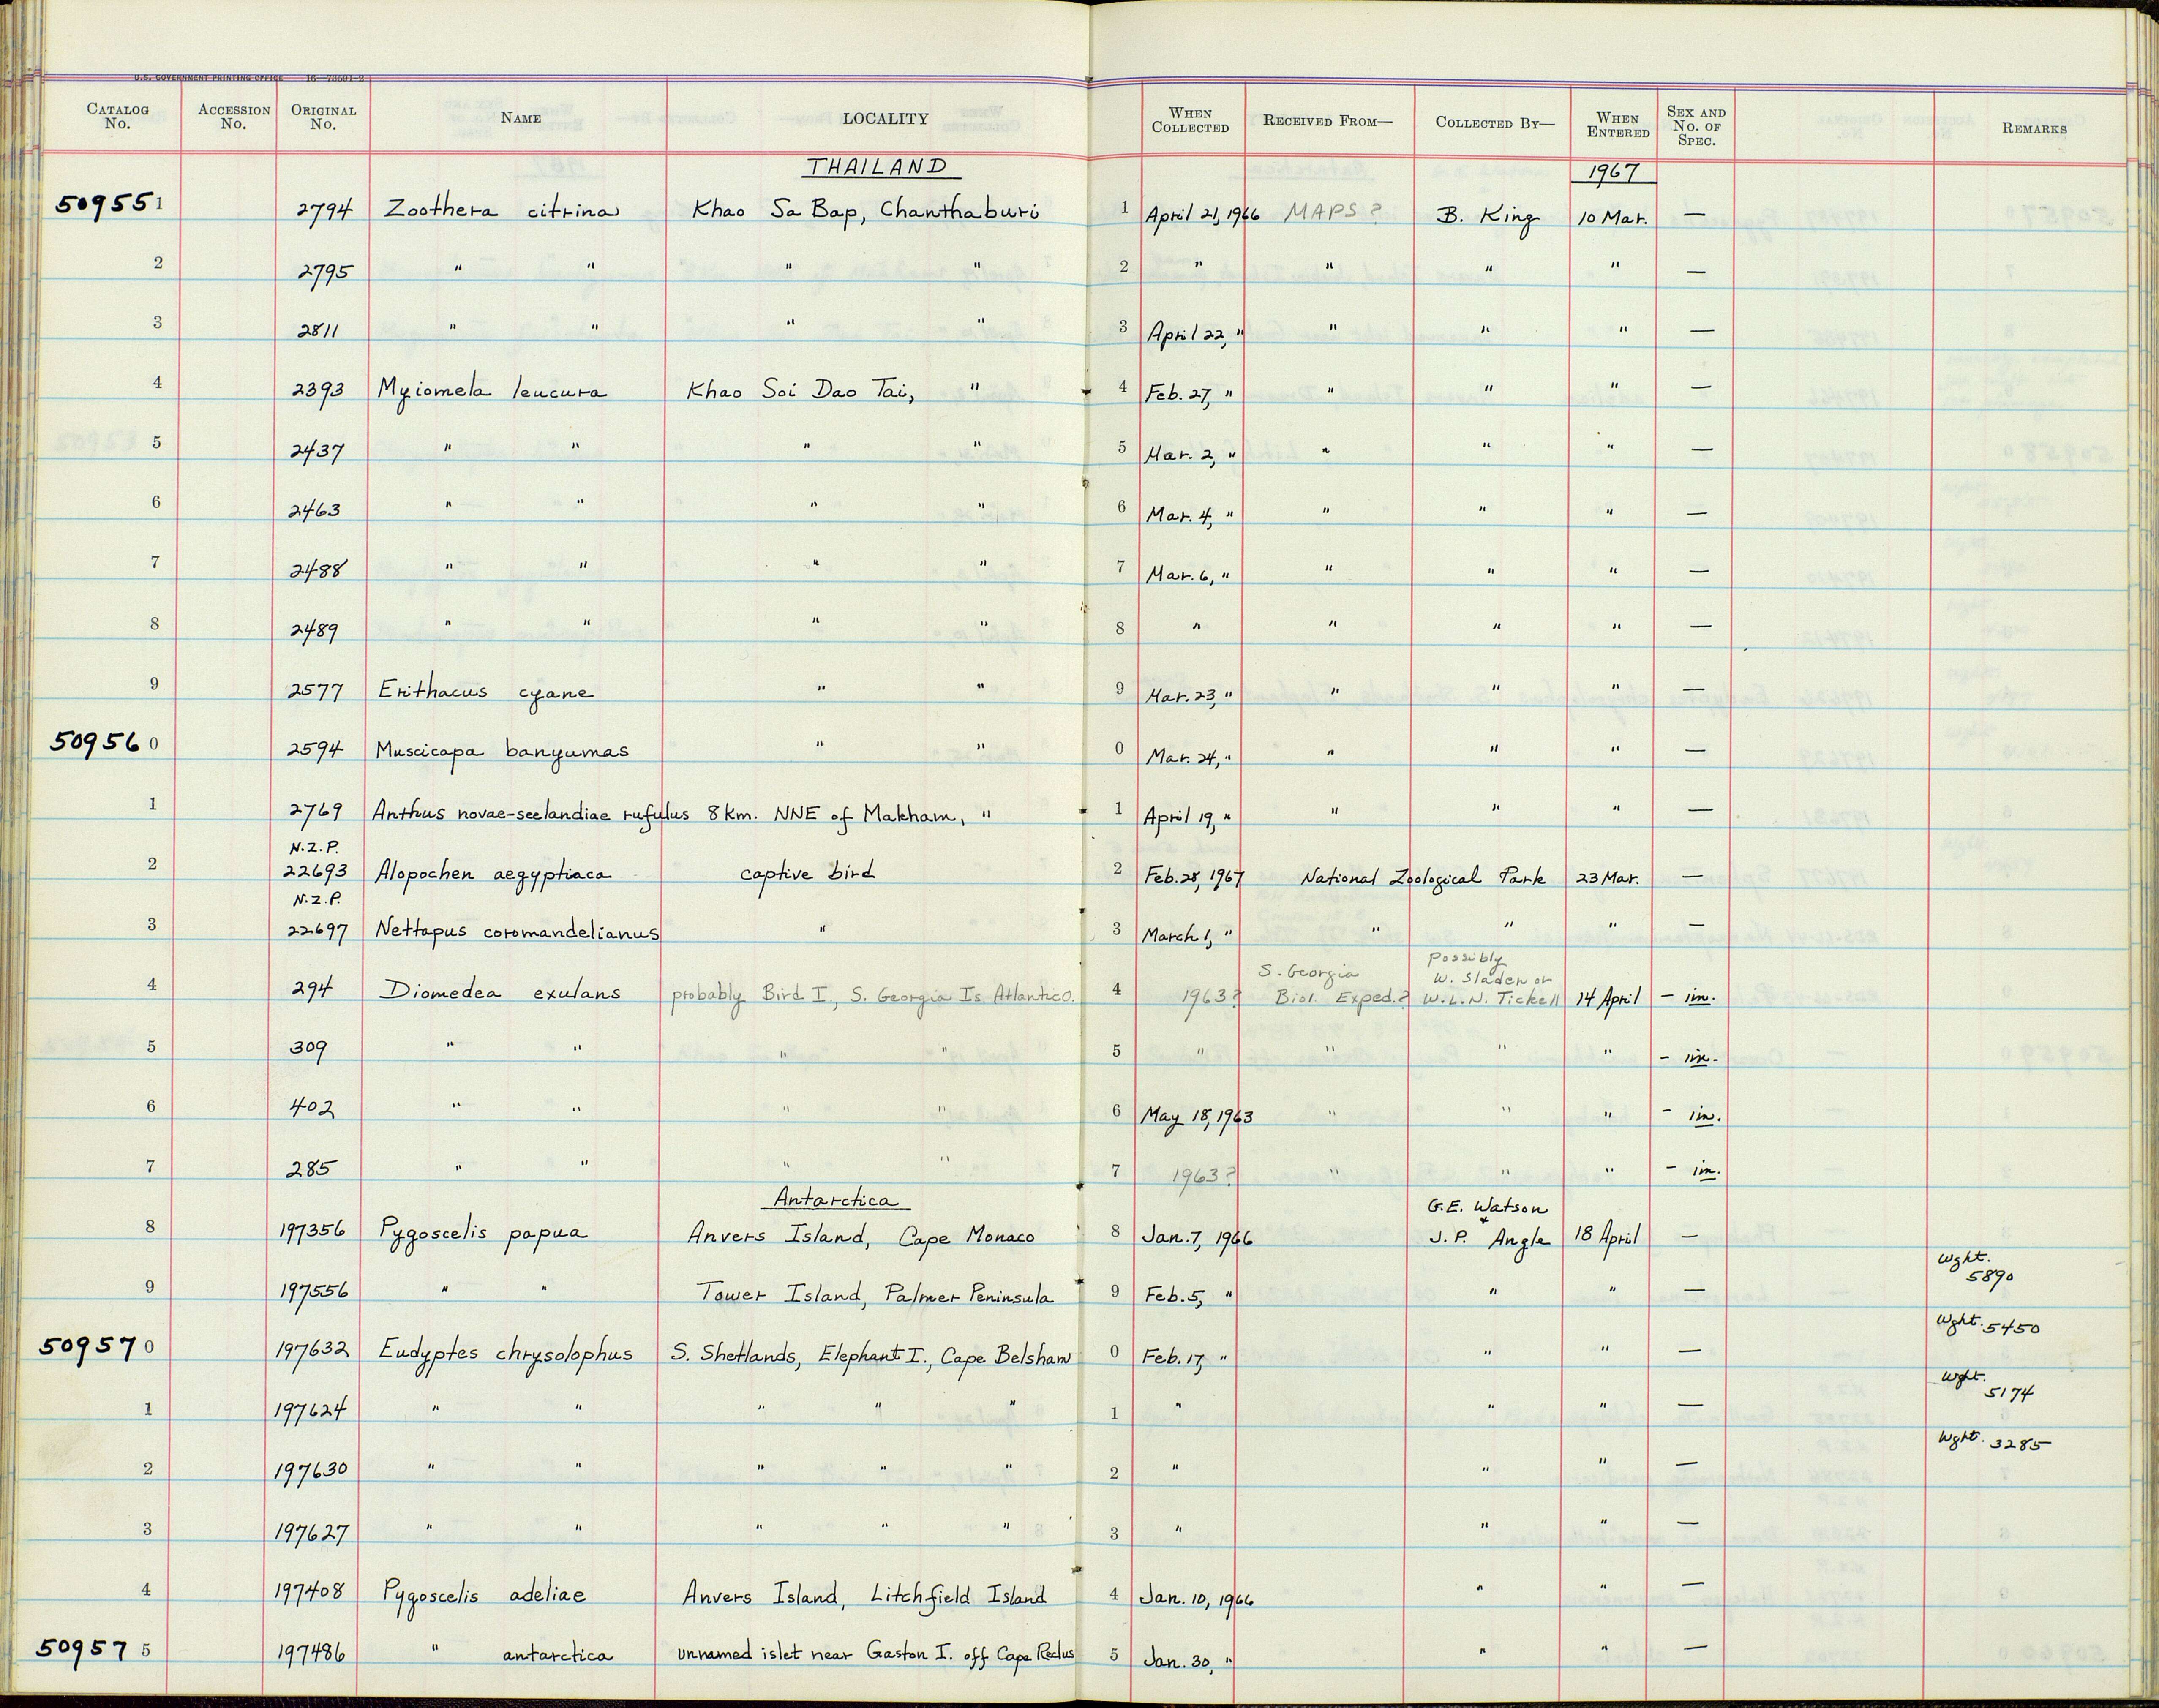 U.S. GOVERNMENT PRINTING OFFICE 16—78591-2
CATALOG No. ACCESSION No. ORIGINAL No. NAME LOCALITY WHEN COLLECTED RECEIVED FROM— COLLECTED BY— WHEN ENTERED SEX AND No. OF SPEC. REMARKS
THAILAND 1967
509551 2794 Zoothera citrina Khao Sa Bap, Chanthaburi 1 April 21, 1966 MAPS? B. King 10 Mar. —
2 2795 " " " " 2 " " " " —
3 2811 " " " " 3 April 22, " " " " —
4 2393 Myiomela leucura Khao Soi Dao Tai, " 4 Feb. 27, " " " " —
5 2437 " " " " 5 Mar. 2, " " " " —
6 2463 " " " " 6 Mar. 4, " " " " —
7 2488 " " " " 7 Mar. 6, " " " " —
8 2489 " " " " 8 " " " " —
9 2577 Erithacus cyane " " 9 Mar. 23, " " " " —
509560 2594 Muscicapa banyumas " " 0 Mar. 24, " " " " —
1 2769 Anthus novae-seelandiae rufulus 8 km. NNE of Makham, " 1 April 19, " " " " —
N.Z.P.
2 22693 Alopochen aegyptiaca captive bird 2 Feb. 28, 1967 National Zoological Park 23 Mar. —
N.Z.P.
3 22697 Nettapus coromandelianus " 3 March 1, " " " " —
S. Georgia possibly W. Sladen or
4 294 Diomedea exulans probably Bird I., S. Georgia Is. Atlantic O. 4 1963? Biol. Exped.? W.L.N. Tickell 14 April – im.
5 309 " " " " 5 " " " " – im.
6 402 " " " " 6 May 18, 1963 " " " – im.
7 285 " " " " 7 1963? " " " – im.
Antarctica G.E. Watson &
8 197356 Pygoscelis papua Anvers Island, Cape Monaco 8 Jan. 7, 1966 J. P. Angle 18 April —
9 197556 " " Tower Island, Palmer Peninsula 9 Feb. 5, " " " — Wght. 5890
509570 197632 Eudyptes chrysolophus S. Shetlands, Elephant I., Cape Belsham 0 Feb. 17, " " " — Wght. 5450
1 197624 " " " " " 1 " " " — Wght. 5174
2 197630 " " " " " 2 " " " — Wght. 3285
3 197627 " " " " " 3 " " " —
4 197408 Pygoscelis adeliae Anvers Island, Litchfield Island 4 Jan. 10, 1966 " " —
509575 197486 " antarctica unnamed islet near Gaston I. off Cape Reclus 5 Jan. 30, " " " —